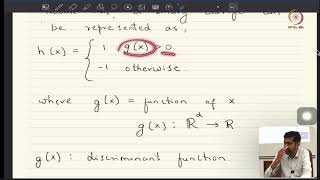 be represented as,
h(x) = { 1 g(x) > 0
-1 otherwise
where g(x) = function of x
g(x) : ℝᵈ → ℝ
g(x) : discriminant function